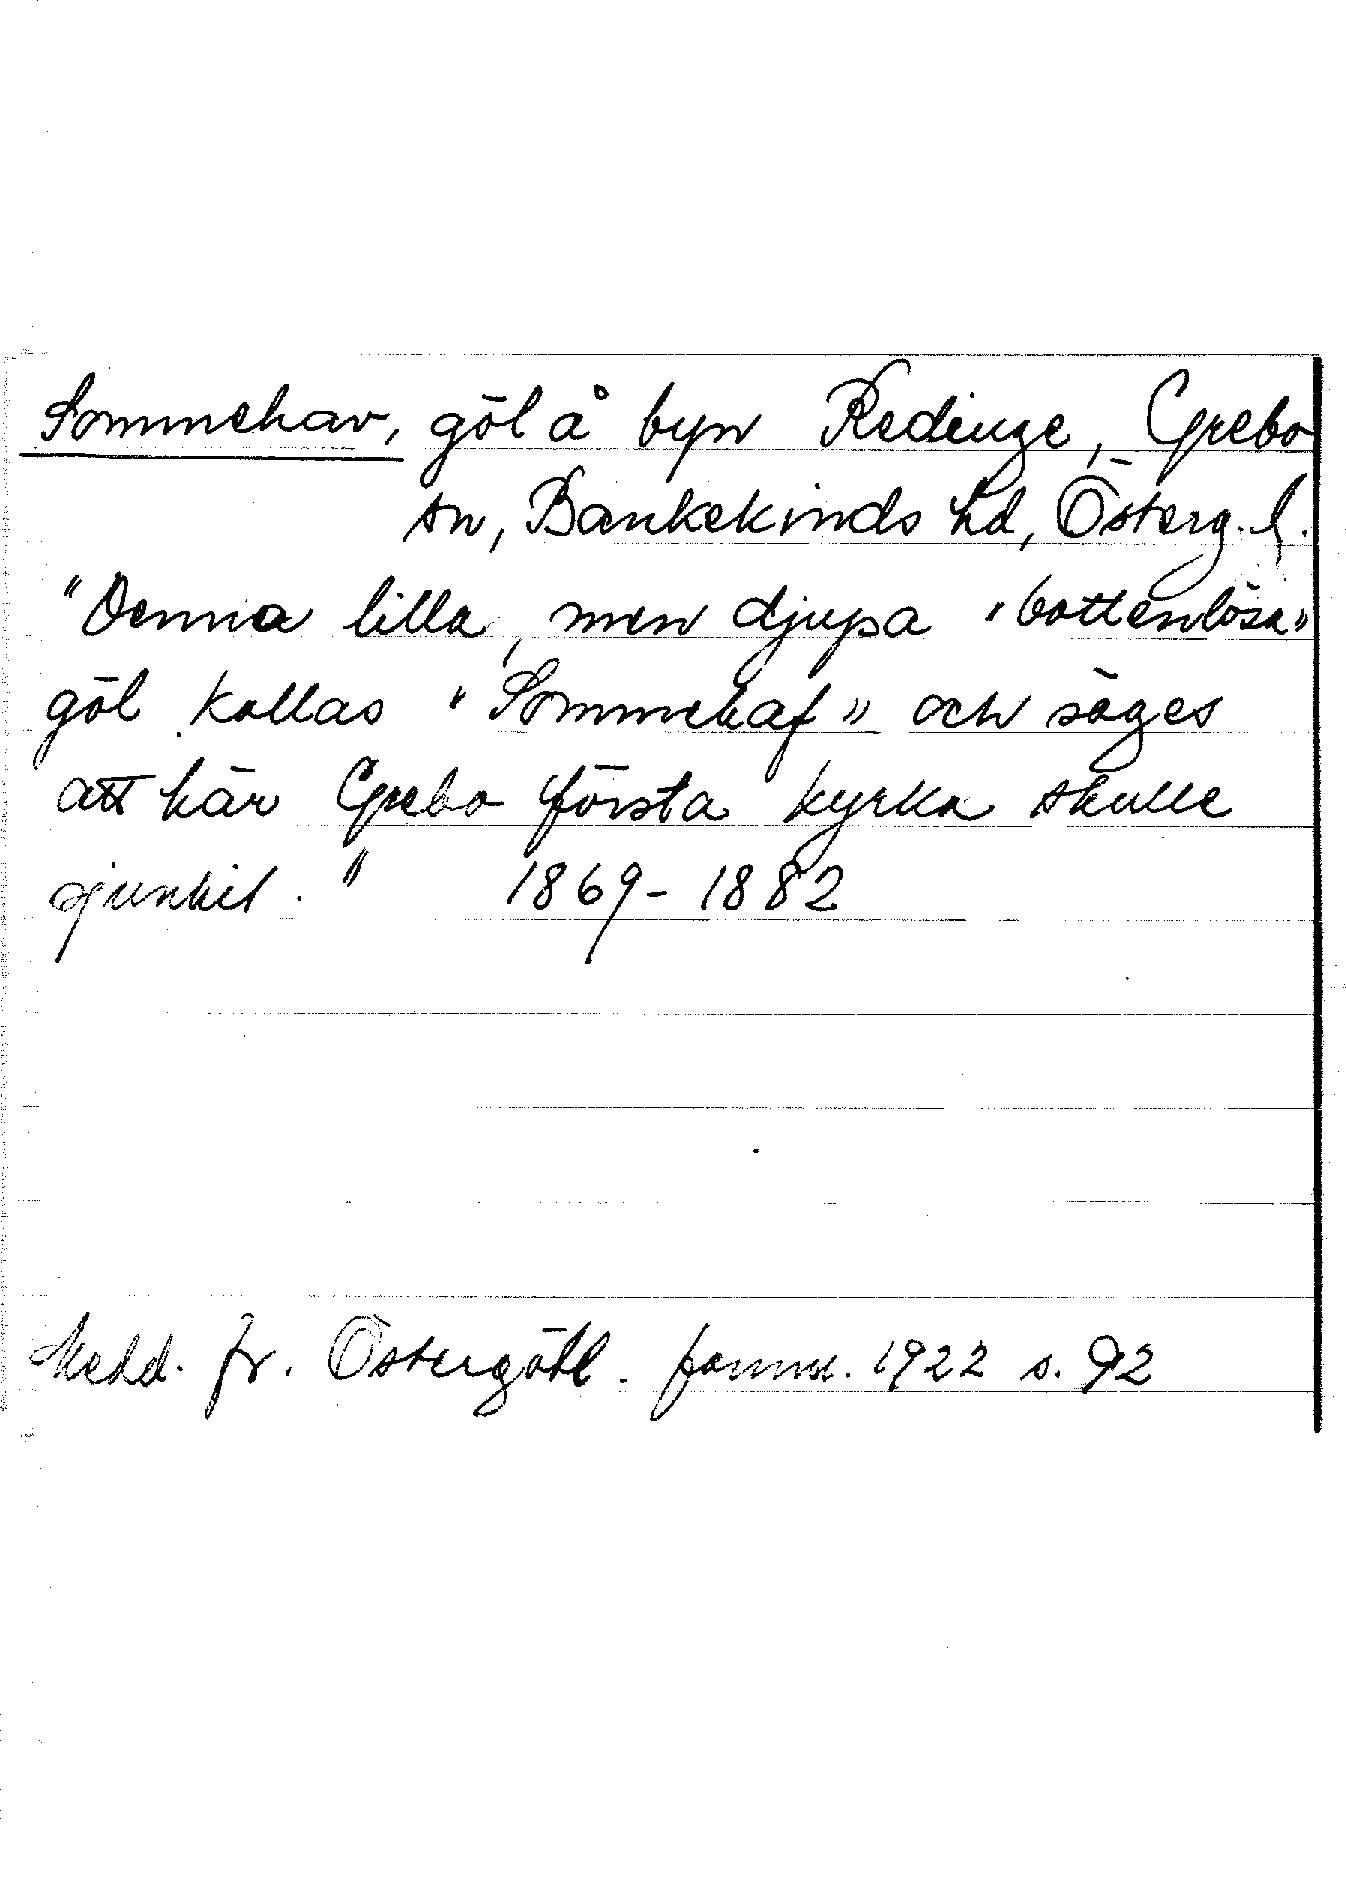 Sommehav, göl å byn Redinge, Grebo
sn, Bankekinds hd, Österg. l.
"Denna lilla, men djupa "bottenlösa"
göl kallas "Sommehaf" och säges
att här Grebo första kyrka skulle
sjunkit." 1869-1882
Medd. fr. Östergötl. fornm. 1922 s. 92